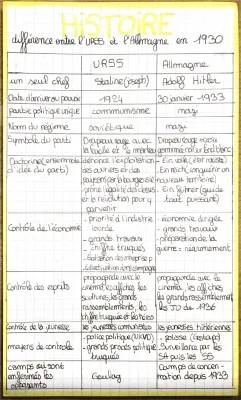 HISTOIRE
différence entre l'URSS et l'Allmagne en 1930
URSS
Allmagne
un seul chef
Staline (Joseph)
Adolf Hitler
Date d'arriver au pouvoir
1924
30 janvier 1933
partie politique unique
communisme
nazi
Nom du régime
soviétique
nazi
Symbole du parti
Drapeau rouge avec la faucille et le marteau
Drapeau rouge
Doctrine (ensemble d'idée du parti)
dénonce l'exploitation des ouvriers et des paysans par la bourgeoisie
prône l'égalité
et la révolution pour y parvenir
- Ein volk (état raciste)
- Ein reich (conquérir un nouveau territoire)
- Ein führer (guide tout puissant)
Contrôle de l'économie
- priorité à l'industrie lourde
- grands travaux
- chiffre truqués
- économie dirigée
- grands travaux
- préparation de la guerre : réarmement
Contrôle des esprits
propagande avec le cinéma, les affiches, les sculptures, les grands rassemblements, les
propagande avec le cinéma, les affiches, les grands rassemblement, les JO de 1936
Contrôle de la jeunesse
les jeunesses communistes
les jeunesses hitlériennes
moyens de controle
- police politique (NKVD)
- grands procès politique truqués
- police (Gestapo)
- Surveillance par les SA puis les SS
camps qui sont enfermés les opposants
Goulag
Camps de concentration depuis 1933